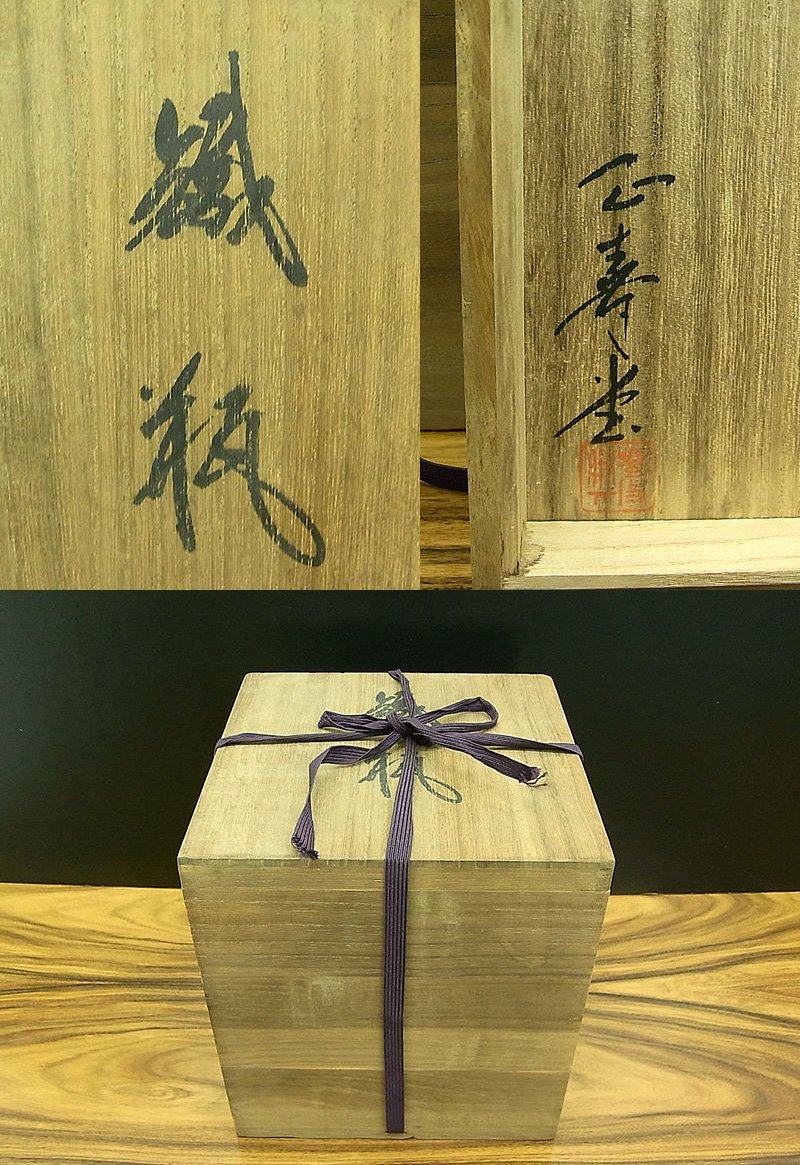 鐵瓶
正寿堂
鐵瓶